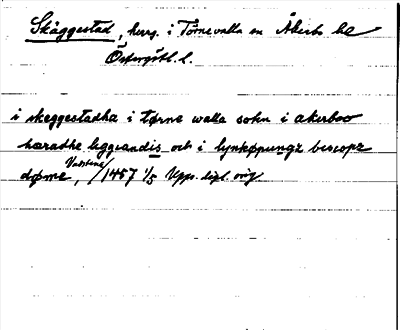 Skäggestad, herrg. i Törnevalla sn Åkerbo hd
Östergötl. l.
i skeggestadha i tørne walla sokn i akerboo
hæradhe liggiandis och i lynkøpungz bescopz
døme, Vadstena / 1457 1/5 Upps. dipl. orig